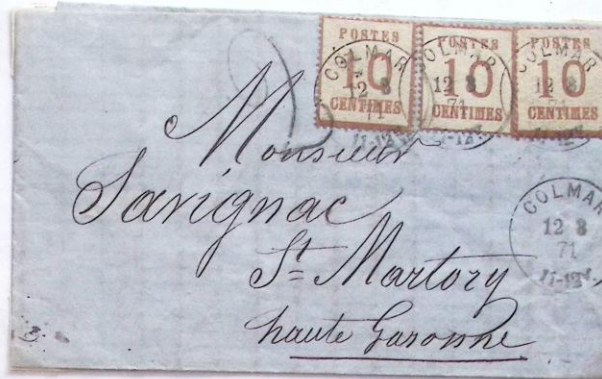 POSTES 10 CENTIMES
POSTES 10 CENTIMES
POSTES 10 CENTIMES
COLMAR 12 8 71
COLMAR 12 8 71
COLMAR 12 8 71
Monsieur
Savignac
St Martory
haute Garonne
COLMAR
12 8
71
11-12